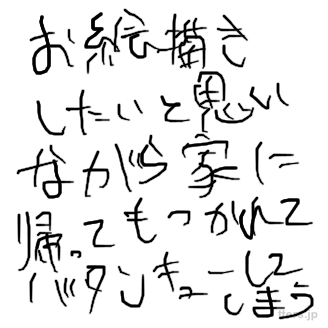 お絵描き
したいと思い
ながら家に
帰ってもつかれて
バタンキューして
しまう